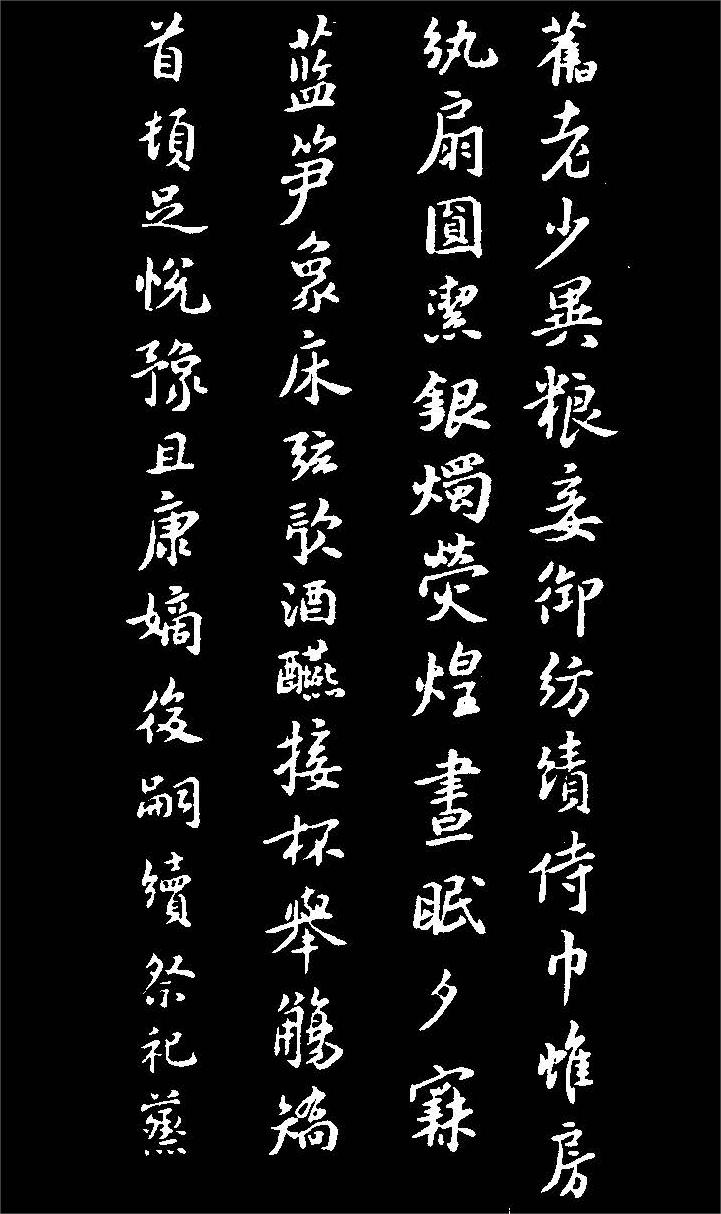 舊老少異粮妾御紡績侍巾帷房
紈扇圓潔銀燭熒煌晝眠夕寐
蓝笋象床弦歌酒醼接杯舉觴矯
首頓足悅豫且康嫡後嗣續祭祀蒸